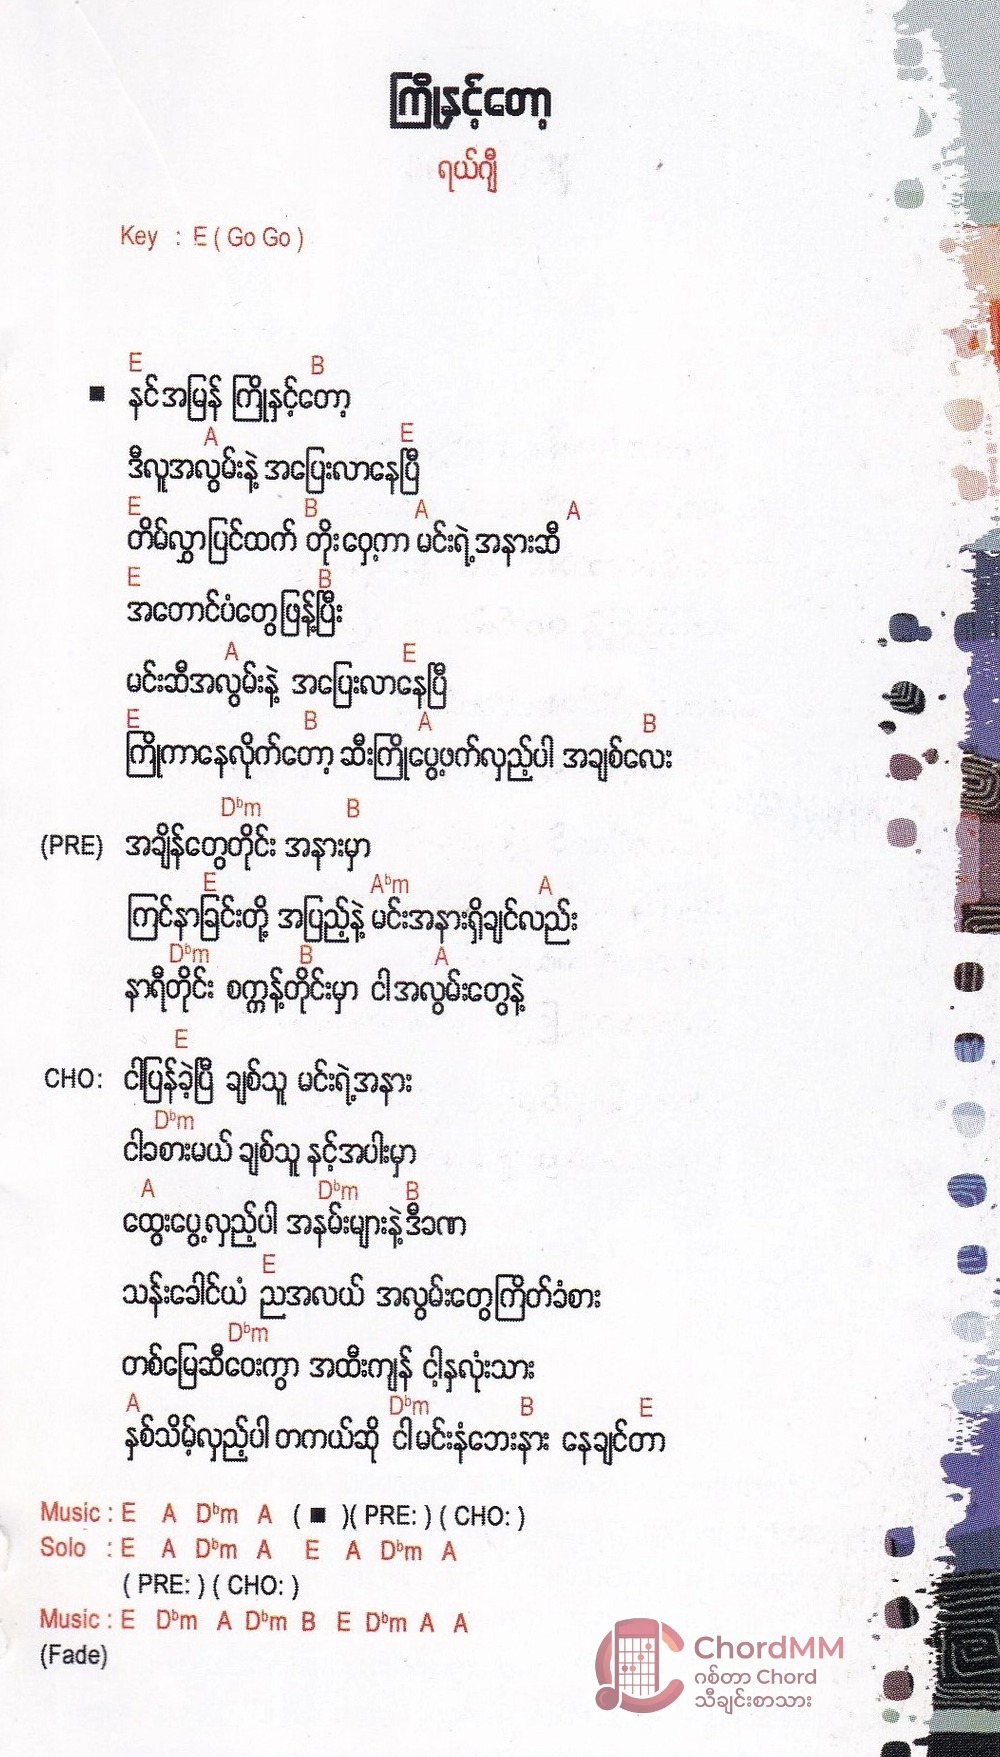 ကြိုနှင့်တော့
ရယ်ဂျီ
Key : E ( Go Go )
E B
■ နင်အမြန် ကြိုနှင့်တော့
A E
ဒီလူအလွမ်းနဲ့ အပြေးလာနေပြီ
E B A A
တိမ်လွှာပြင်ထက် တိုးဝှေ့ကာ မင်းရဲ့အနားဆီ
E B
အတောင်ပံတွေဖြန့်ပြီး
A E
မင်းဆီအလွမ်းနဲ့ အပြေးလာနေပြီ
E B A B
ကြိုကာနေလိုက်တော့ ဆီးကြိုပွေ့ဖက်လှည့်ပါ အချစ်လေး
Dbm B
(PRE) အချိန်တွေတိုင်း အနားမှာ
E Abm A
ကြင်နာခြင်းတို့ အပြည့်နဲ့ မင်းအနားရှိချင်လည်း
Dbm B A
နာရီတိုင်း စက္ကန့်တိုင်းမှာ ငါအလွမ်းတွေနဲ့
E
CHO: ငါပြန်ခဲ့ပြီ ချစ်သူ မင်းရဲ့အနား
Dbm
ငါခစားမယ် ချစ်သူ နင့်အပါးမှာ
A Dbm B
ထွေးပွေ့လှည့်ပါ အနမ်းများနဲ့ဒီခဏ
E
သန်းခေါင်ယံ ညအလယ် အလွမ်းတွေကြိတ်ခံစား
Dbm
တစ်မြေဆီဝေးကွာ အထီးကျန် ငါ့နှလုံးသား
A Dbm B E
နှစ်သိမ့်လှည့်ပါ တကယ်ဆို ငါမင်းနံဘေးနား နေချင်တာ
Music : E A Dbm A ( ■ )( PRE: ) ( CHO: )
Solo : E A Dbm A E A Dbm A
( PRE: ) ( CHO: )
Music : E Dbm A Dbm B E Dbm A A
(Fade)
ChordMM
ဂစ်တာ Chord
သီချင်းစာသား